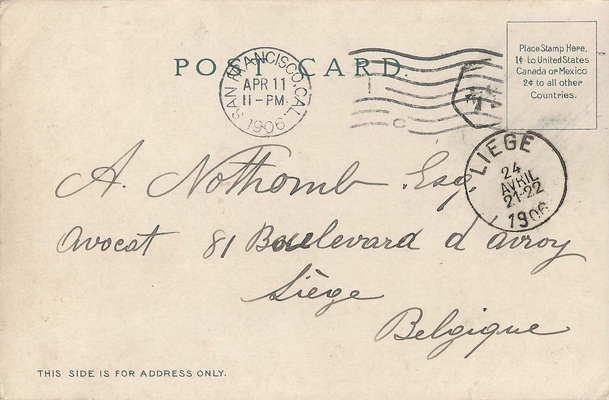 POST CARD.
SAN FRANCISCO, CAL.
APR 11
11-PM
1906
Place Stamp Here.
1¢ to United States
Canada or Mexico
2¢ to all other
Countries.
LIEGE
24
AVRIL
21-22
1906
A. Nothomb Esq.
Avocat 81 Boulevard d'avroy
Liège
Belgique
THIS SIDE IS FOR ADDRESS ONLY.